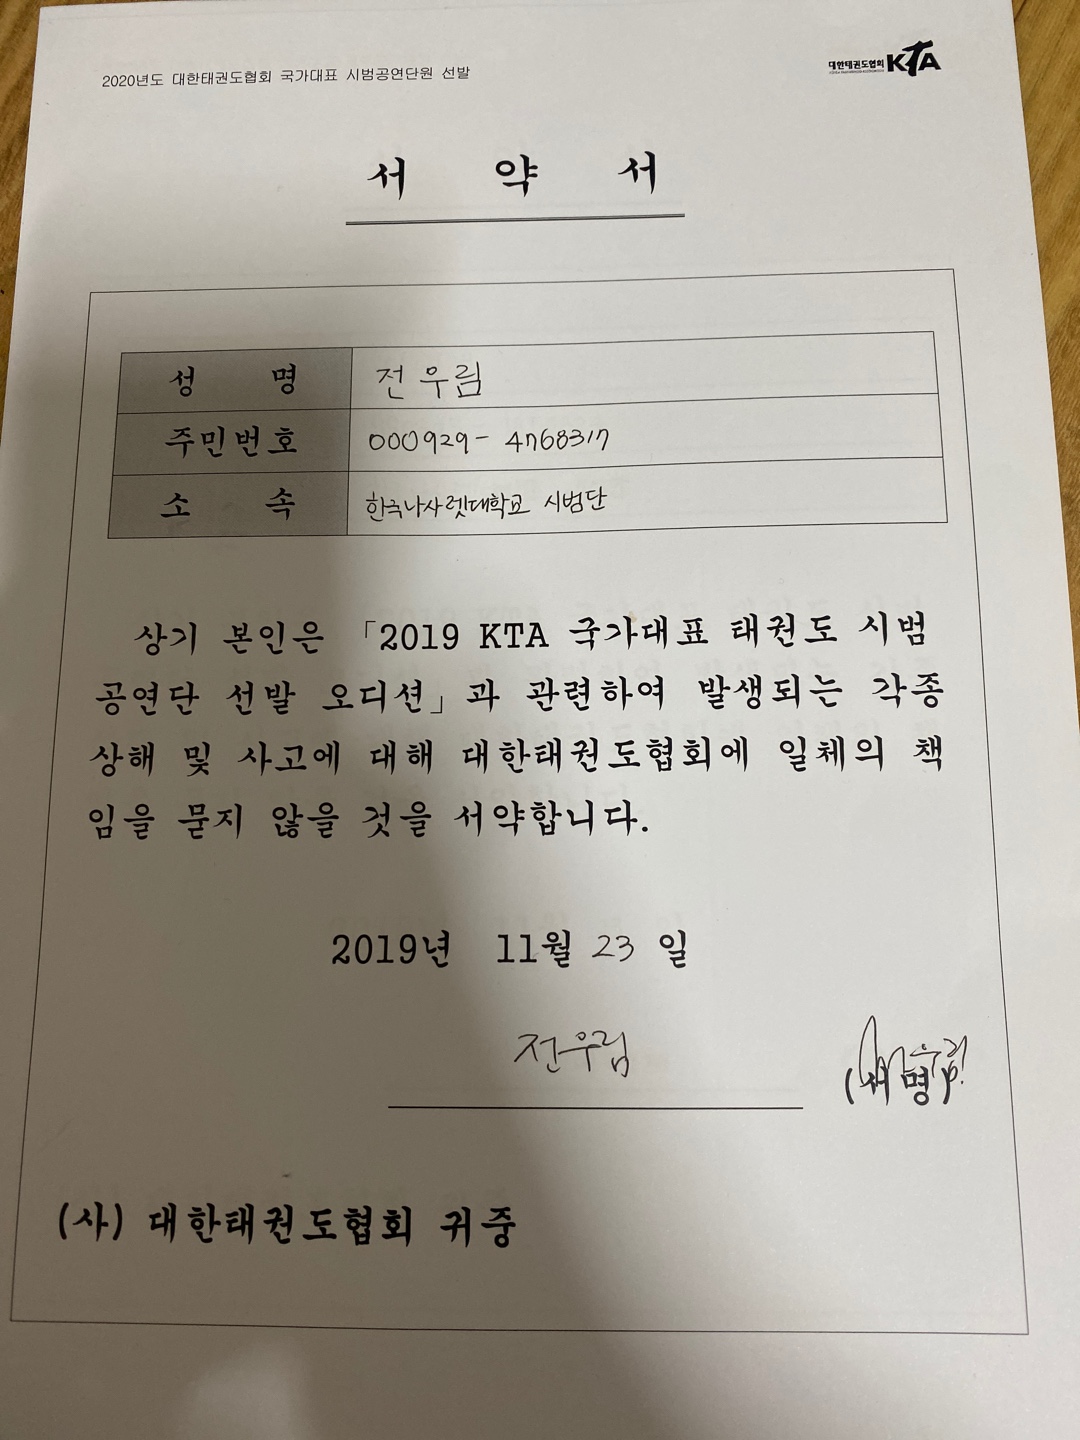 2020년도 대한태권도협회 국가대표 시범공연단원 선발
대한태권도협회 KTA
서 약 서
성 명 전우림
주민번호 000929-4768317
소 속 한국나사렛대학교 시범단
상기 본인은 「2019 KTA 국가대표 태권도 시범
공연단 선발 오디션」과 관련하여 발생되는 각종
상해 및 사고에 대해 대한태권도협회에 일체의 책
임을 묻지 않을 것을 서약합니다.
2019년 11월 23 일
전우림 (서명)
(사) 대한태권도협회 귀중